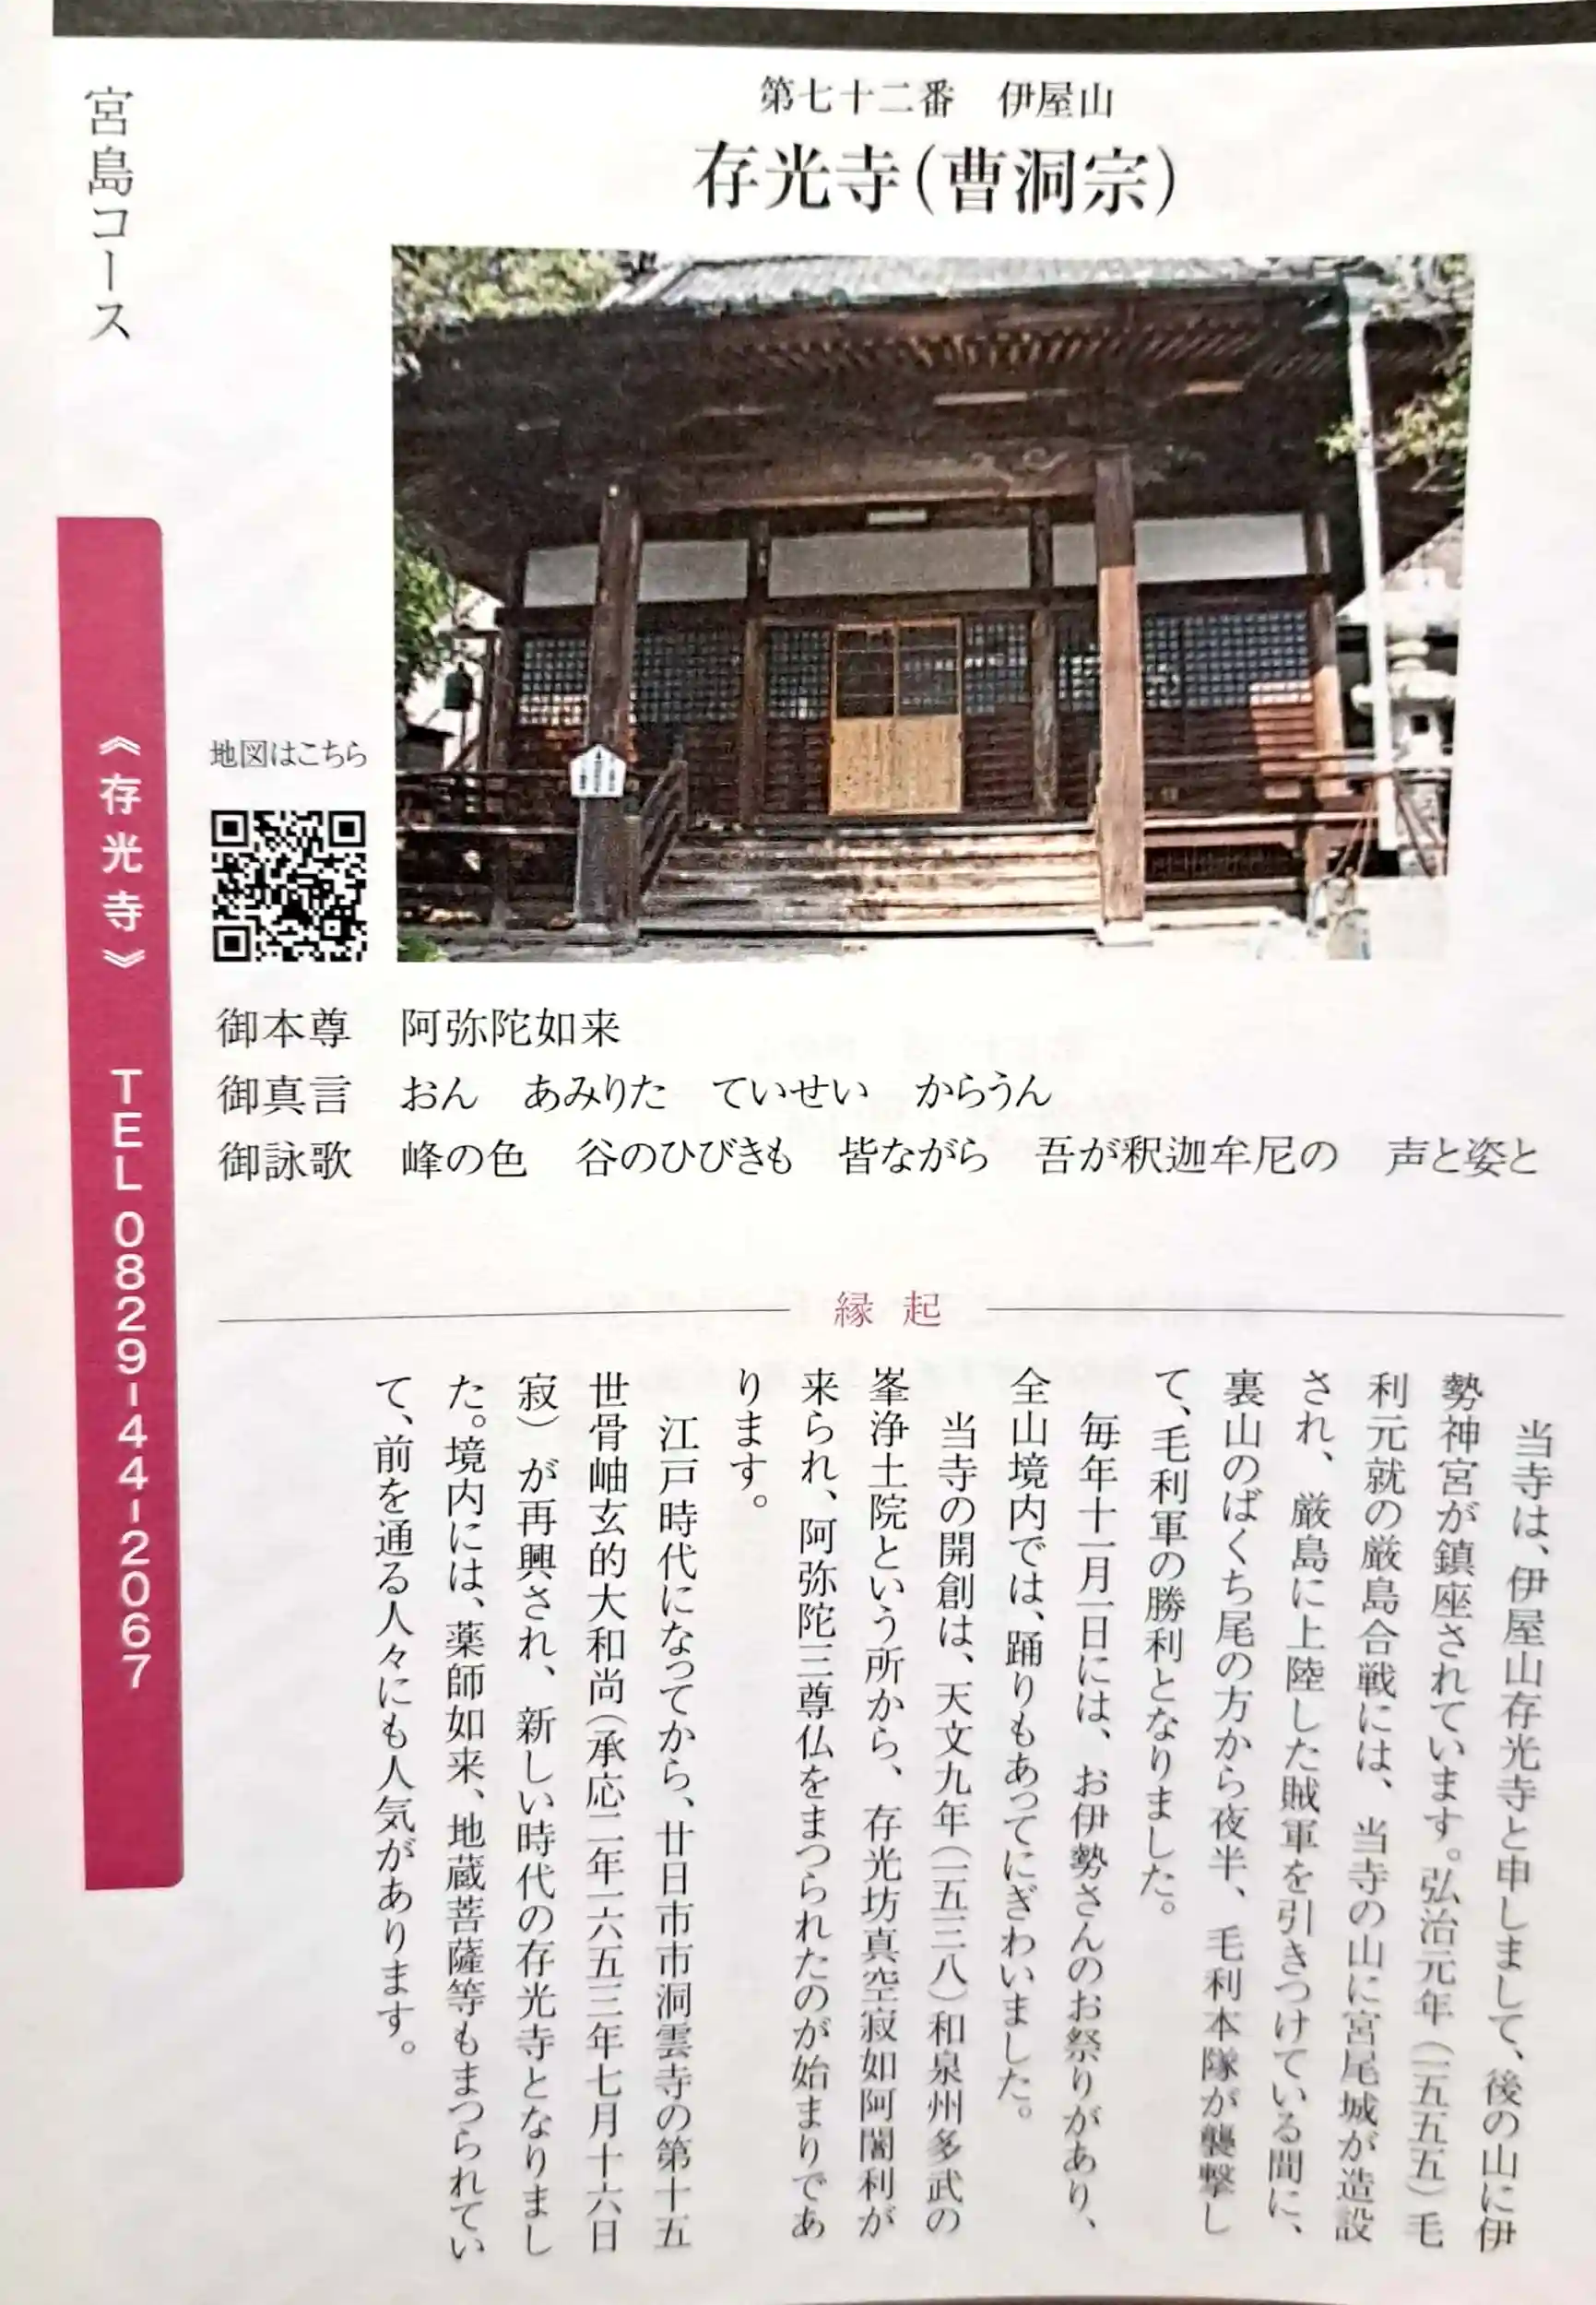 宮島コース
第七十二番　伊屋山
存光寺(曹洞宗)
地図はこちら
《存光寺》　TEL 0829-44-2067
御本尊　阿弥陀如来
御真言　おん　あみりた　ていせい　からうん
御詠歌　峰の色　谷のひびきも　皆ながら　吾が釈迦牟尼の　声と姿と
縁起
当寺は、伊屋山存光寺と申しまして、後の山に伊
勢神宮が鎮座されています。弘治元年（一五五五）毛
利元就の厳島合戦には、当寺の山に宮尾城が造設
され、厳島に上陸した賊軍を引きつけている間に、
裏山のばくち尾の方から夜半、毛利本隊が襲撃し
て、毛利軍の勝利となりました。
毎年十一月一日には、お伊勢さんのお祭りがあり、
全山境内では、踊りもあってにぎわいました。
当寺の開創は、天文九年（一五三八）和泉州多武の
峯浄土院という所から、存光坊真空寂如阿闍利が
来られ、阿弥陀三尊仏をまつられたのが始まりであ
ります。
江戸時代になってから、廿日市市洞雲寺の第十五
世骨岫玄的大和尚（承応二年一六五三年七月十六日
寂）が再興され、新しい時代の存光寺となりまし
た。境内には、薬師如来、地蔵菩薩等もまつられてい
て、前を通る人々にも人気があります。